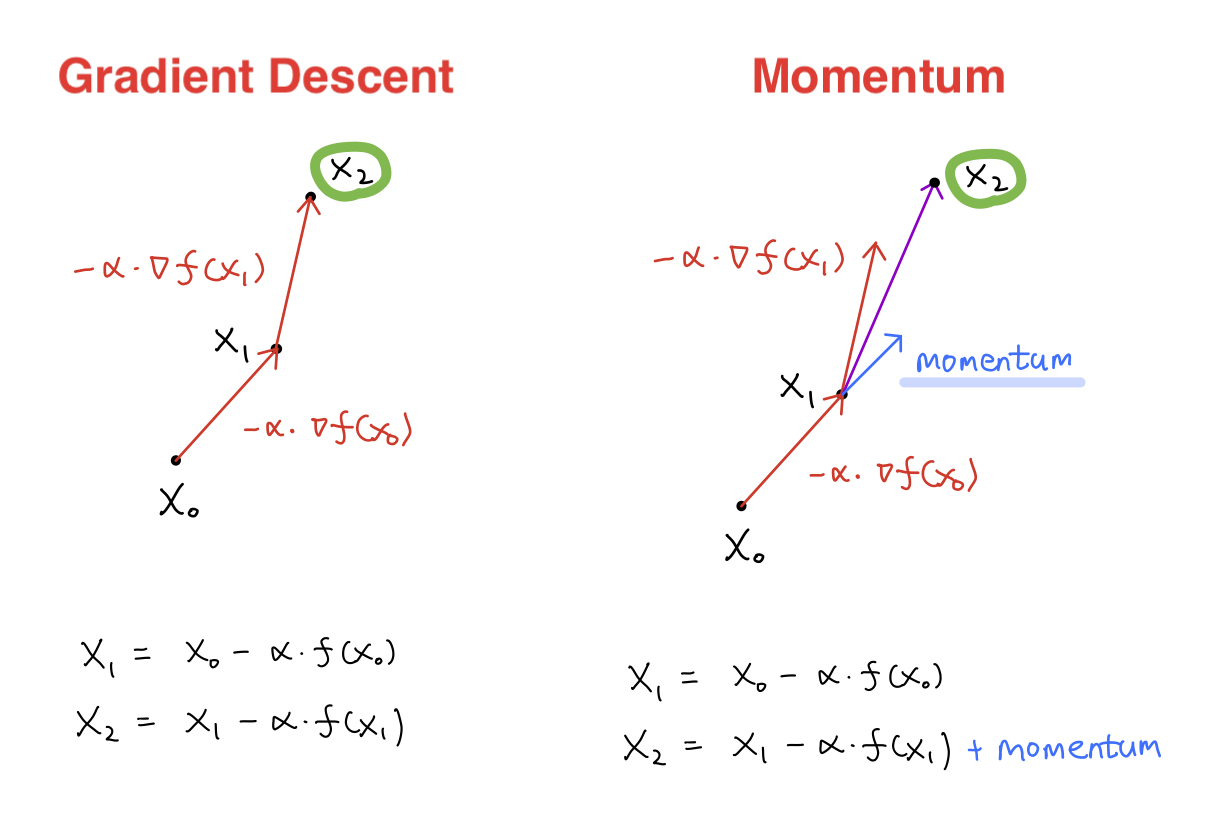 Gradient Descent
X₂
-α·∇f(x₁)
X₁
-α·∇f(x₀)
X₀
X₁ = X₀ - α·f(x₀)
X₂ = X₁ - α·f(x₁)
Momentum
X₂
-α·∇f(x₁)
momentum
X₁
-α·∇f(x₀)
X₀
X₁ = X₀ - α·f(x₀)
X₂ = X₁ - α·f(x₁) + momentum